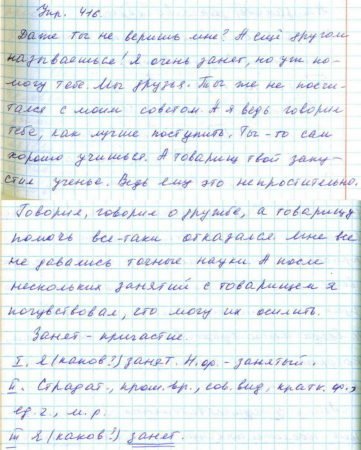 Упр. 416.
Даже ты не веришь мне? А ещё другом
называешься! Я очень занят, но уж по-
могу тебе. Мы друзья. Ты же не посчи-
тался с моим советом. А я ведь говорил
тебе, как лучше поступить. Ты-то сам
хорошо учишься. А товарищ твой запу-
стил ученье. Ведь ему это непростительно.
Говорил, говорил о дружбе, а товарищу
помочь все-таки отказался. Мне все
не давались точные науки. А после
нескольких занятий с товарищем я
почувствовал, что могу их осилить.
Занят - причастие.
I. Я (каков?) занят. Н.ф. - занятый.
II. Страдат., прош. вр., сов. вид, кратк. ф.,
ед. ч., м. р.
III Я (каков?) занят.